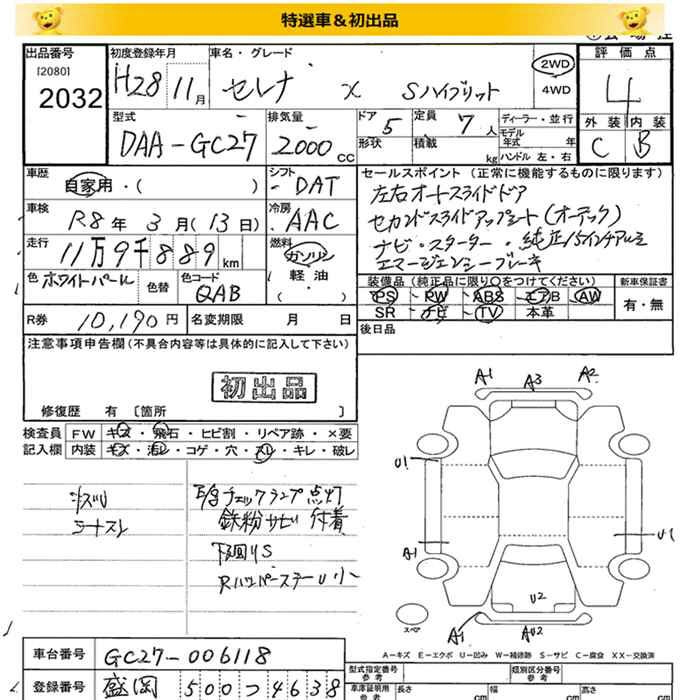 特選車＆初出品
出品番号
[2080]
2032
初度登録年月
H28 11月
車名・グレード
セレナ X Sハイブリット
2WD
4WD
評価点
4
外装 内装
C B
型式
DAA-GC27
排気量
2000 CC
ドア
5
形状
定員
7人
積載 kg
ディーラー・並行
モデル年式 年
ハンドル 左・右
車歴
自家用・( )
シフト
DAT
車検
R8年 3月 (13日)
冷房
AAC
走行
11万9千889 km
燃料
ガソリン
軽油
( ・ )
色 ホワイトパール 色替
色コード
QAB
セールスポイント (正常に機能するものに限ります)
左右オートスライドドア
セカンドスライドアップシート(オーテック)
ナビ・スターター・純正15インチアルミ
エマージェンシーブレーキ
装備品 (純正品に限り○をつけてください)
新車保証書
PS ・ PW ・ ABS ・ エアB AW
SR ・ ナビ ・ TV ・ 本革
有・無
R券 10,190円 名変期限 月 日
後日品
注意事項申告欄 (不具合内容等は具体的に記入して下さい)
初出品
修復歴 有 〔箇所 〕
検査員 FW キズ・飛石・ヒビ割・リペア跡・×要
記入欄 内装 キズ・汚レ・コゲ・穴・スレ・キレ・破レ
シートスレ
チェックランプ点灯
鉄粉サビ付着
下回りS
A1 A3 A2
U1
U1
A1
U2
A1 AU2
スペア
A－キズ E－エクボ U－凹み W－補修跡 S－サビ C－腐食 XX－交換済
車台番号 GC27-006118
登録番号 盛岡 500つ4638
型式指定番号 参考
類別区分番号 参考
車庫証明用 参考 長さ cm 幅 cm 高さ cm